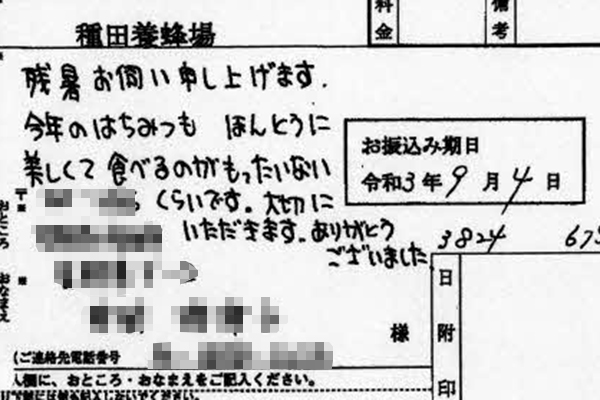 種田養蜂場
料金
備考
残暑お伺い申し上げます.
今年のはちみつも ほんとうに
美しくて食べるのがもったいない
くらいです。大切に
いただきます.ありがとう
ございました
お振込み期日
令和3年9月4日
〒
おところ おなまえ
3824
675
様
日附印
(ご連絡先電話番号
人欄に、おところ・おなまえをご記入ください。